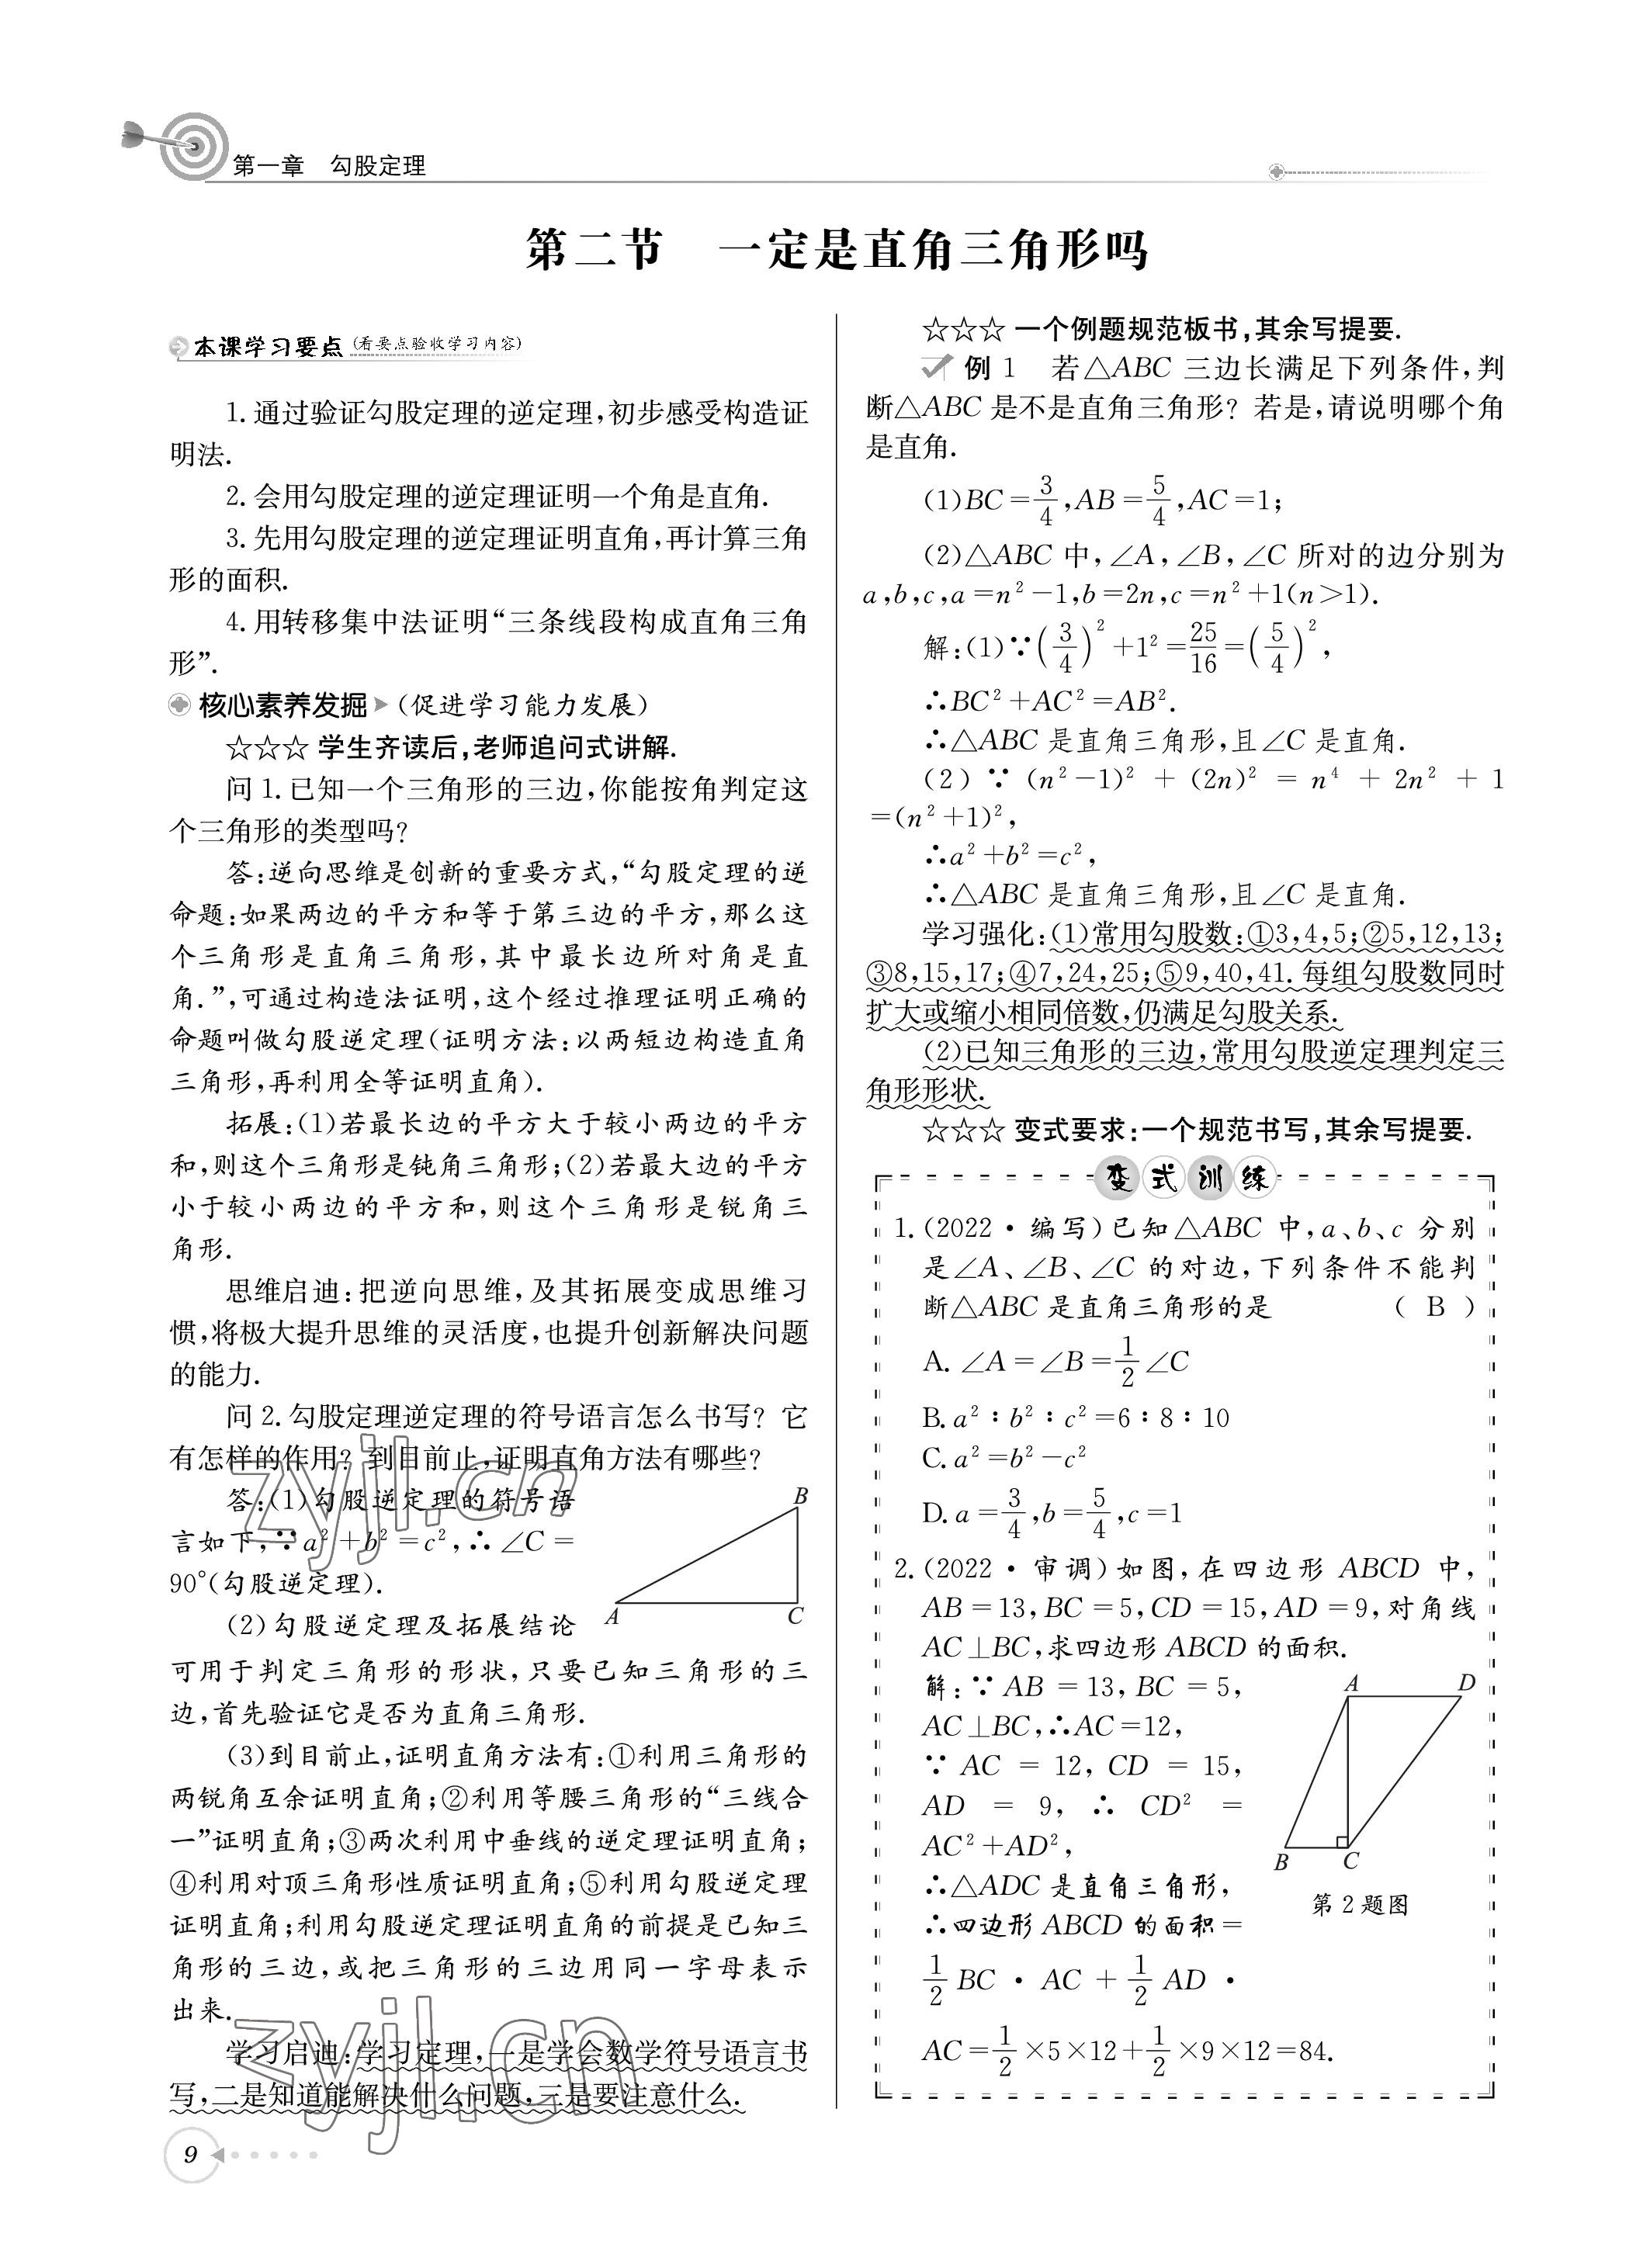 第一章 勾股定理
第二节 一定是直角三角形吗
本课学习要点(看要点验收学习内容)
1.通过验证勾股定理的逆定理,初步感受构造证
明法.
2.会用勾股定理的逆定理证明一个角是直角.
3.先用勾股定理的逆定理证明直角,再计算三角
形的面积.
4.用转移集中法证明“三条线段构成直角三角
形”.
核心素养发掘(促进学习能力发展)
☆☆☆ 学生齐读后,老师追问式讲解.
问 1.已知一个三角形的三边,你能按角判定这
个三角形的类型吗?
答:逆向思维是创新的重要方式,“勾股定理的逆
命题:如果两边的平方和等于第三边的平方,那么这
个三角形是直角三角形,其中最长边所对角是直
角.”,可通过构造法证明,这个经过推理证明正确的
命题叫做勾股逆定理(证明方法:以两短边构造直角
三角形,再利用全等证明直角).
拓展:(1)若最长边的平方大于较小两边的平方
和,则这个三角形是钝角三角形;(2)若最大边的平方
小于较小两边的平方和,则这个三角形是锐角三
角形.
思维启迪:把逆向思维,及其拓展变成思维习
惯,将极大提升思维的灵活度,也提升创新解决问题
的能力.
问 2.勾股定理逆定理的符号语言怎么书写? 它
有怎样的作用? 到目前止,证明直角方法有哪些?
答:(1)勾股逆定理的符号语
言如下,∵a²+b²=c²,∴∠C=
90°(勾股逆定理).
B
A
C
(2)勾股逆定理及拓展结论
可用于判定三角形的形状,只要已知三角形的三
边,首先验证它是否为直角三角形.
(3)到目前止,证明直角方法有:①利用三角形的
两锐角互余证明直角;②利用等腰三角形的“三线合
一”证明直角;③两次利用中垂线的逆定理证明直角;
④利用对顶三角形性质证明直角;⑤利用勾股逆定理
证明直角;利用勾股逆定理证明直角的前提是已知三
角形的三边,或把三角形的三边用同一字母表示
出来.
学习启迪:学习定理,一是学会数学符号语言书
写,二是知道能解决什么问题,三是要注意什么.
zyjl.cn
zyjl.cn
9
☆☆☆ 一个例题规范板书,其余写提要.
例 1 若△ABC 三边长满足下列条件,判
断△ABC 是不是直角三角形? 若是,请说明哪个角
是直角.
(1)BC=3/4,AB=5/4,AC=1;
(2)△ABC 中,∠A,∠B,∠C 所对的边分别为
a,b,c,a=n²-1,b=2n,c=n²+1(n>1).
解:(1)∵(3/4)²+1²=25/16=(5/4)²,
∴BC²+AC²=AB².
∴△ABC 是直角三角形,且∠C 是直角.
(2)∵(n²-1)²+(2n)²=n⁴+2n²+1
=(n²+1)²,
∴a²+b²=c²,
∴△ABC 是直角三角形,且∠C 是直角.
学习强化:(1)常用勾股数:①3,4,5;②5,12,13;
③8,15,17;④7,24,25;⑤9,40,41.每组勾股数同时
扩大或缩小相同倍数,仍满足勾股关系.
(2)已知三角形的三边,常用勾股逆定理判定三
角形形状.
☆☆☆ 变式要求:一个规范书写,其余写提要.
变式训练
1.(2022·编写)已知△ABC 中,a、b、c 分别
是∠A、∠B、∠C 的对边,下列条件不能判
断△ABC 是直角三角形的是 ( B )
A.∠A=∠B=1/2∠C
B.a²∶b²∶c²=6∶8∶10
C.a²=b²-c²
D.a=3/4,b=5/4,c=1
2.(2022·审调)如图,在四边形 ABCD 中,
AB=13,BC=5,CD=15,AD=9,对角线
AC⊥BC,求四边形 ABCD 的面积.
解:∵AB=13,BC=5,
AC⊥BC,∴AC=12,
∵AC=12,CD=15,
AD=9,∴CD²=
AC²+AD²,
∴△ADC 是直角三角形,
∴四边形 ABCD 的面积=
1/2 BC·AC+1/2 AD·
AC=1/2×5×12+1/2×9×12=84.
A
D
B
C
第 2 题图